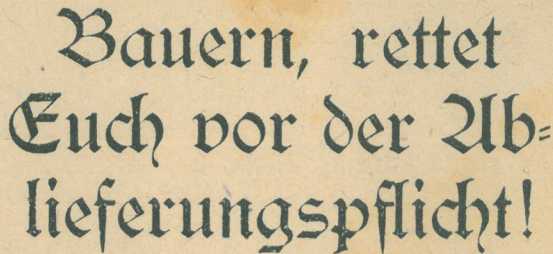 Bauern, rettet
Euch vor der Ab-
lieferungspflicht!